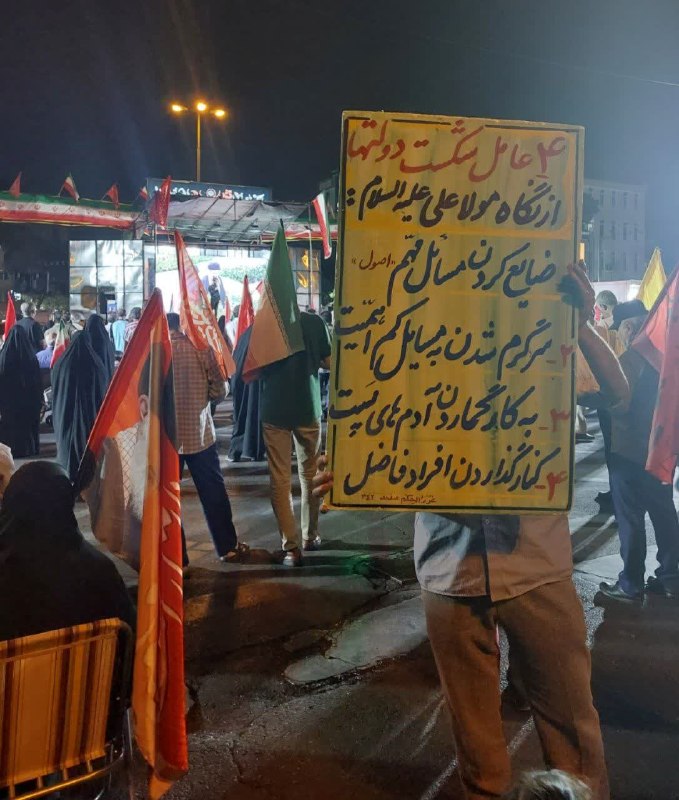 ۴ عامل شکست دولتها
از نگاه مولا علی علیه السلام:
ضایع کردن مسائل مهم «اصول»
۲- سرگرم شدن به مسایل کم اهمیّت
۳- به کار گماردن آدم‌های پَست
۴- کنار گذاردن افراد فاضل
غررالحکم صفحه ۳۴۲